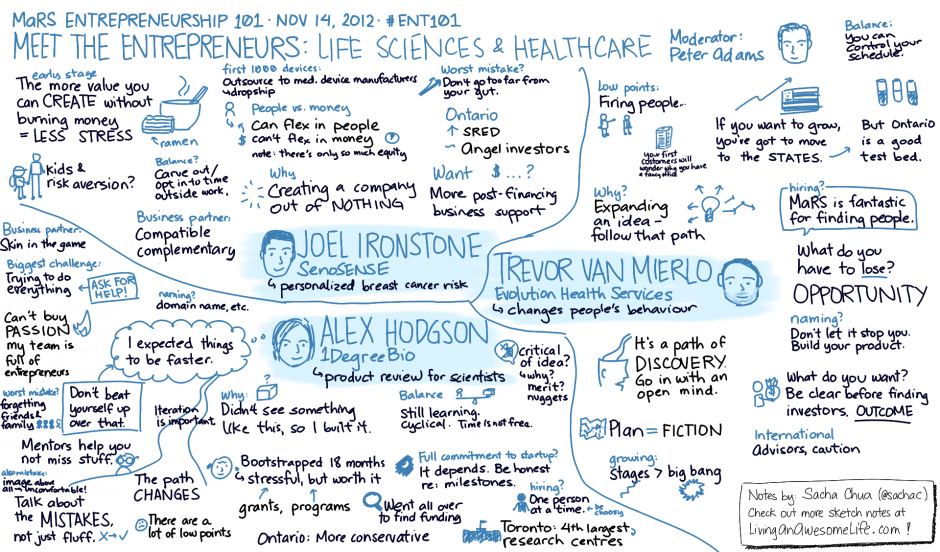 MaRS ENTREPRENEURSHIP 101 · NOV 14, 2012 · #ENT101
MEET THE ENTREPRENEURS: LIFE SCIENCES & HEALTHCARE
Moderator:
Peter Adams
Balance:
you can
control your
schedule.
early stage
The more value you
can CREATE without
burning money
= LESS STRESS
ramen
kids &
risk aversion?
Balance?
Carve out/
opt in to time
outside work.
first 1000 devices:
Outsource to med. device manufacturers
dropship
People vs. money
Can flex in people
can't flex in money
note: there's only so much equity
Why
Creating a company
out of NOTHING
Worst mistake?
Don't go too far from
your gut.
Ontario
↑ SRED
~ Angel investors
Want $...?
More post-financing
business support
Business partner:
Skin in the game
Business partner:
Compatible
complementary
JOEL IRONSTONE
SenoSENSE
↳ personalized breast cancer risk
Low points:
Firing people..
your first
customers will
wonder why you have
a fancy office
If you want to grow,
you've got to move
to the STATES.
But Ontario
is a good
test bed.
Why?
Expanding
an idea -
follow that path
hiring?
MaRS is fantastic
for finding people.
What do you
have to lose?
OPPORTUNITY
naming?
Don't let it stop you.
Build your product.
TREVOR VAN MIERLO
Evolution Health Services
↳ changes people's behaviour
It's a path of
DISCOVERY.
Go in with an
open mind.
Plan = FICTION
growing:
Stages > big bang
What do you want?
Be clear before finding
investors. OUTCOME
International
Advisors, caution
Biggest challenge:
Trying to do
everything
ASK FOR
HELP!
naming?
domain name, etc.
Can't buy
PASSION
my team is
full of
entrepreneurs
I expected things
to be faster.
ALEX HODGSON
1DegreeBio
↳ product review for scientists
critical
of idea?
why?
merit?
nuggets
worst mistake?
forgetting
friends &
family
Don't beat
yourself up
over that.
Iteration
is important.
Why:
Didn't see something
like this, so I built it.
Balance
Still learning.
Cyclical. Time is not free.
Mentors help you
not miss stuff.
also mistake:
image above
all → uncomfortable!
Talk about
the MISTAKES,
not just fluff. X→✓
The path
CHANGES
There are a
lot of low points
Bootstrapped 18 months
↳ stressful, but worth it
grants, programs
Ontario: More conservative
Full commitment to startup?
It depends. Be honest
re: milestones.
Went all over
to find funding
hiring?
One person
at a time.
be choosy
Toronto: 4th largest
research centres
Notes by: Sacha Chua (@sachac)
Check out more sketch notes at
LivingAnAwesomeLife.com !